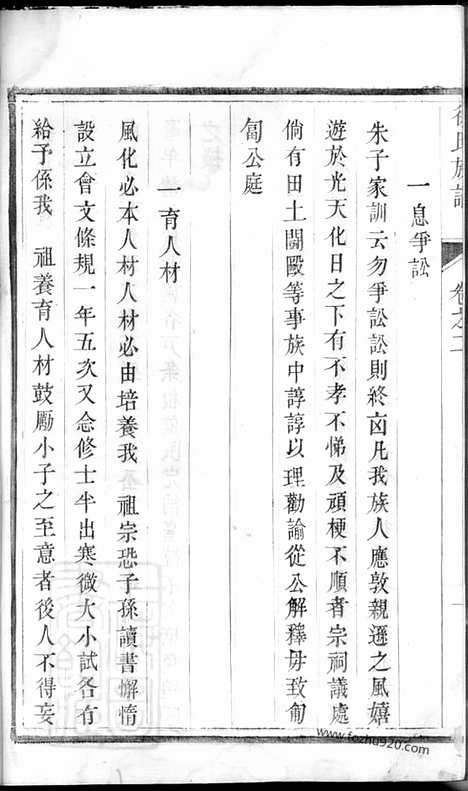 氏族譜 卷之二
一息爭訟
朱子家訓云勿爭訟訟則終凶凡我族人應敦親遜之風嬉
遊於光天化日之下有不孝不悌及頑梗不順者宗祠議處
倘有田土鬪毆等事族中諄諄以理勸諭從公解釋毋致匍
匐公庭
一育人材
風化必本人材人材必由培養我 祖宗恐子孫讀書懈惰
設立會文條規一年五次又念修士半出寒微大小試各有
給予係我 祖養育人材鼓勵小子之至意者後人不得妄
www.fozhu920.com